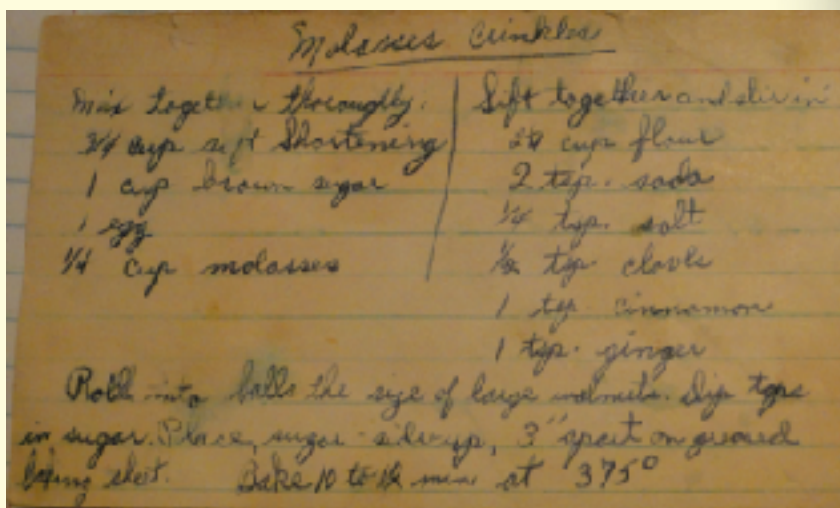 Molasses Crinkles
Mix together thoroughly.
3/4 cup soft Shortening
1 cup brown sugar
1 egg
1/4 cup molasses
Sift together and stir in
2 1/4 cup flour
2 tsp. soda
1/4 tsp. salt
1/2 tsp. cloves
1 tsp cinnamon
1 tsp. ginger
Roll into balls the size of large walnuts. Dip tops
in sugar. Place, sugar-side up, 3" apart on greased
baking sheet. Bake 10 to 12 min at 375°